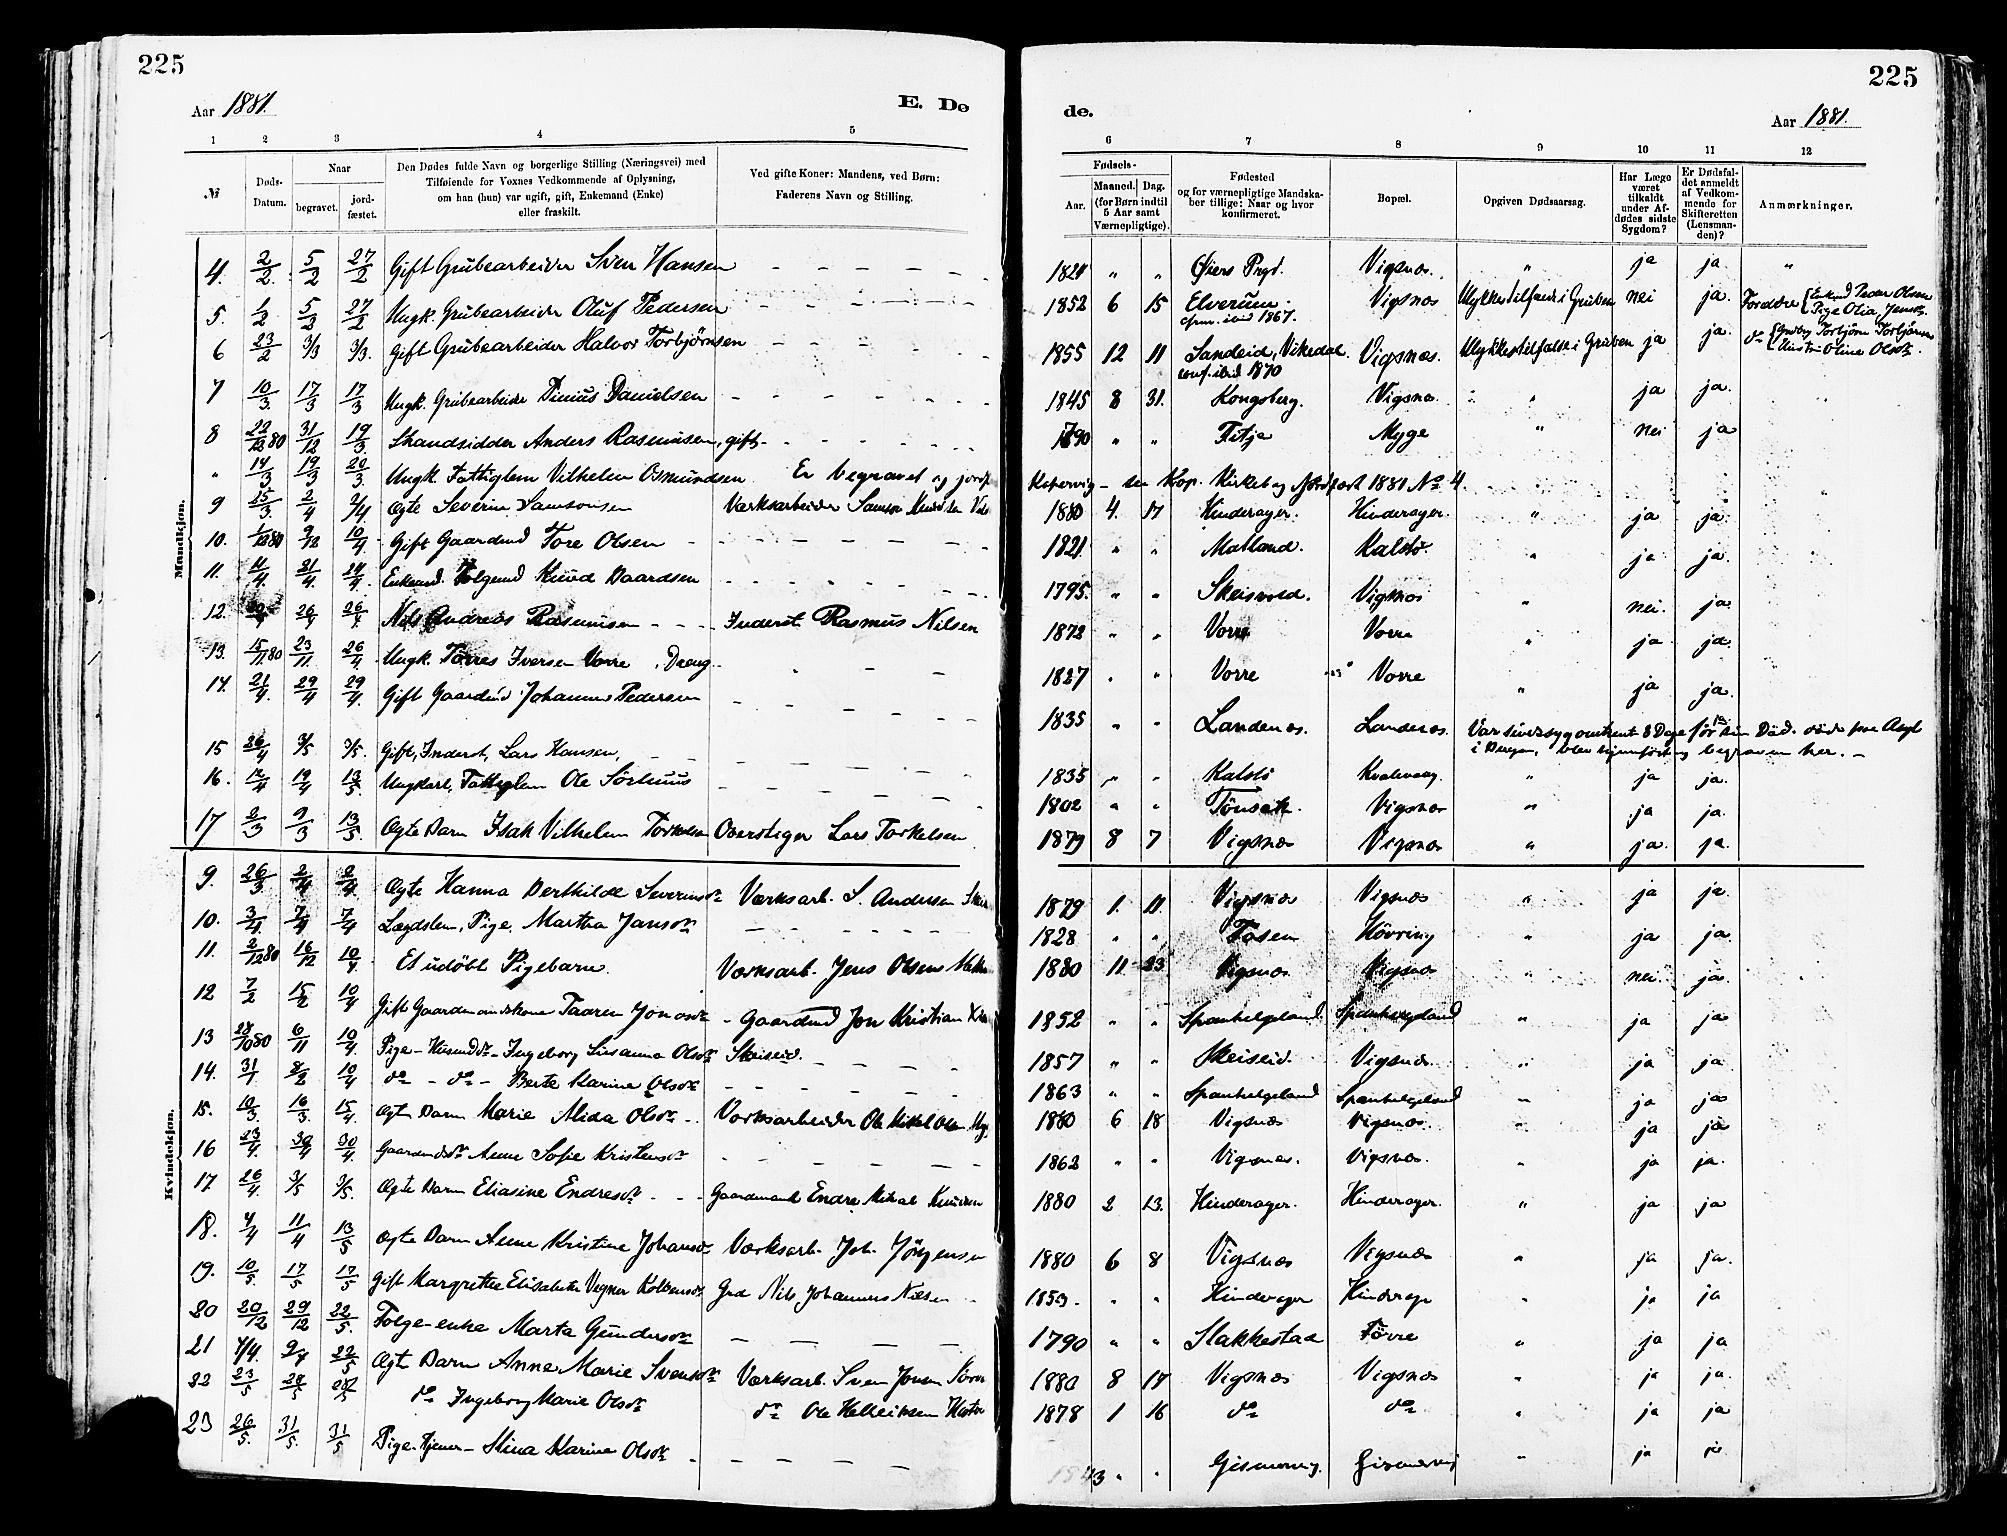 225
225
Aar 1881.
E. Dø
de.
Aar 1881.
1 2 3 4 5 6 7 8 9 10 11 12
№
Døds-Datum.
Naar
begravet.
jord-fæstet.
Den Dødes fulde Navn og borgerlige Stilling (Næringsvei) med
Tilføiende for Voxnes Vedkommende af Oplysning,
om han (hun) var ugift, gift, Enkemand (Enke)
eller fraskilt.
Ved gifte Koner: Mandens, ved Børn:
Faderens Navn og Stilling.
Fødsels-
Aar.
Maaned. Dag.
(for Børn indtil
5 Aar samt
Værnepligtige).
Fødested
og for værnepligtige Mandska-
ber tillige: Naar og hvor
konfirmeret.
Bopæl.
Opgiven Dødsaarsag.
Har Læge
været
tilkaldt
under Af-
dødes sidste
Sygdom?
Er Dødsfal-
det anmeldt
af Vedkom-
mende for
Skifteretten
(Lensman-
den)?
Anmærkninger.
Mandkjøn.
4. 2/2 5/2 27/2 Gift Grubearbeider Sven Hansen 1821 " " Øiers Prgd. Vigsnæs. " ja ja. "
5. 1/2 5/2 27/2 Ungk. Grubearbeider Oluf Pedersen 1852 6 15 Elverum. Vigsnæs Ulykkestilfælde i Gruben nei ja. Forældre Enkemd Peder Olsen
conf. ibid 1867. Pige Olia Jensdr.
6 23/2 3/3 3/3. Gift Grubearbeider Halvor Torbjørnsen 1855 12 11 Sandeid, Vikedal. Vigsnæs. Ulykkestilfælde i Gruben ja ja. do Torbjørn Torbjørnsen
conf. ibid 1870 Oline Olsdr.
7 10/3 17/3 17/3 Ungk. Grubearbeider Danielsen 1845 8 31. Kongsberg. Vigsnæs. " ja ja.
8 22/12 80 31/12 19/3 Strandsidder Anders Rasmusen, gift 1790 " " Fitja Myge " nei ja
" 14/3 19/3 20/3 Ungk. Fattiglem Vilhelm Osmundsen Er begravet og jordf. Kopervig - se Kop. Kirkebog 1881 No 4.
9 25/3. 2/4 2/4 Ægte Severin Samsonsen Værksarbeider Samson 1880 4. 17 Hinderager. Hinderager. " ja ja.
10. 1/12 80 9/12 10/4 Gift Gaardmd Tore Olsen 1821. " " Matland. Kalstø. " ja ja.
11. 11/4. 21/4. 24/4. Enkemd. Følgemd Knud Baardsen 1795. " " Skeisvold. Vigsnæs " nei. ja
12. 26/4 26/4 Nils Andreas Rasmusen Inderst Rasmus Nilsen 1872 " " Vorre Vorre " ja ja.
13. 15/11 80 23/11. 26/4 Ungk. Torres Iversen Vorre, Dreng 1827 " " Vorre Vorre " ja ja.
14. 21/4. 29/4 29/4. Gift Gaardmd Johannes Pedersen 1835 " " Landenæs. Landenæs. Var sindssyg omtrent 8 Dage før sin Død. døde paa Asyl
i Bergen, blev hjemført og begraven her.
15 26/4 3/5 3/5. Gift, Inderst, Lars Hansen, 1835 " " Kalstø Kvalevaag. " ja ja.
16. 12/4 19/4 13/5 Ungkarl, Fattiglem Ole Sørhuus 1802 " " Vigsnæs " ja ja.
17 2/3 9/3 13/5 Ægte Barn Isak Vilhelm Torkelsen Overstiger Lars Torkelsen 1879 8 7 Vigsnæs Vigsnæs " ja. ja.
Kvindekjøn.
9. 26/3 2/4 2/4 Ægte Hanna Berthilde Severinsdr Værksarb. S. Andersen 1879 1. 11 Vigsnæs Vigsnæs " ja ja.
10. 3/4. 7/4 7/4 Lægdslem, Pige, Martha Jansdr 1828 " " Fosen Høvring " ja ja.
11. 2/12 80 16/12 10/4 Et udøbt Pigebarn. Værksarb. Jens Olsen 1880 11 23 Vigsnæs Vigsnæs " nei ja.
12 7/2 15/2 10/4 Gift Gaardmandskone Taaren Jonasdr Gaardmd Jon Kristian 1852 " " Spanhelgeland Spanhelgeland " ja ja
13 28/10 80 6/11 10/4. Pige - Husmdsdr - Ingeborg Susanna Olsdr Skeiseid. 1857 " " Skeiseid. Vigsnæs. " ja ja.
14. 31/1 8/2 10/4 do - do - Berte Karine Olsdr 1863 " " Spanhelgeland Spanhelgeland " ja ja
15. 10/3. 16/3 15/4. Ægte Barn Marie Alida Olsdr Værksarbeider Ole Mikal Olsen 1880 6 18 Vigsnæs Vigsnæs. " ja ja
16 23/4. 30/4 30/4. Gaardmdsdr Anne Sofie Kristensdr 1862 " " Vigsnæs. Vigsnæs. " ja ja.
17. 26/4. 3/5 3/5. Ægte Barn Eliasine Endresdr Gaardmand Endre Mikal Knudsen 1880 2 13. Hinderager. Hinderager. " ja ja
18. 4/4 11/4 13/5 Ægte Barn Anne Kristine Johansdr Værksarb. Joh. Jørgensen 1880 6 8 Vigsnæs Vigsnæs " ja ja.
19. 10/5. 17/5 17/5 Gift Margrethe Elisabeth Vegner Gmd Nils Johannes Nilsen " " Hinderager Hinderag " ja ja
20 20/12 29/12 22/5. Følge-enke Marta Gundersdr 1790 " " Stakkestad Førre " ja ja
21 4/4. 9/4 22/5 Ægt Barn Anne Marie Svensdr Værksarb. Sven Jonsen 1880 8 17 Vigsnæs Vigsnæs " ja ja.
22 23/5 28/5 28/5 do Ingeborg Marie Olsdr do Ole Helleiksen 1878 1 16 do do " ja ja
23 26/5. 31/5. 31/5 Pige. Tjener - Stina Karine Olsdr 1843 " " Gismervig. Gismervig " ja ja